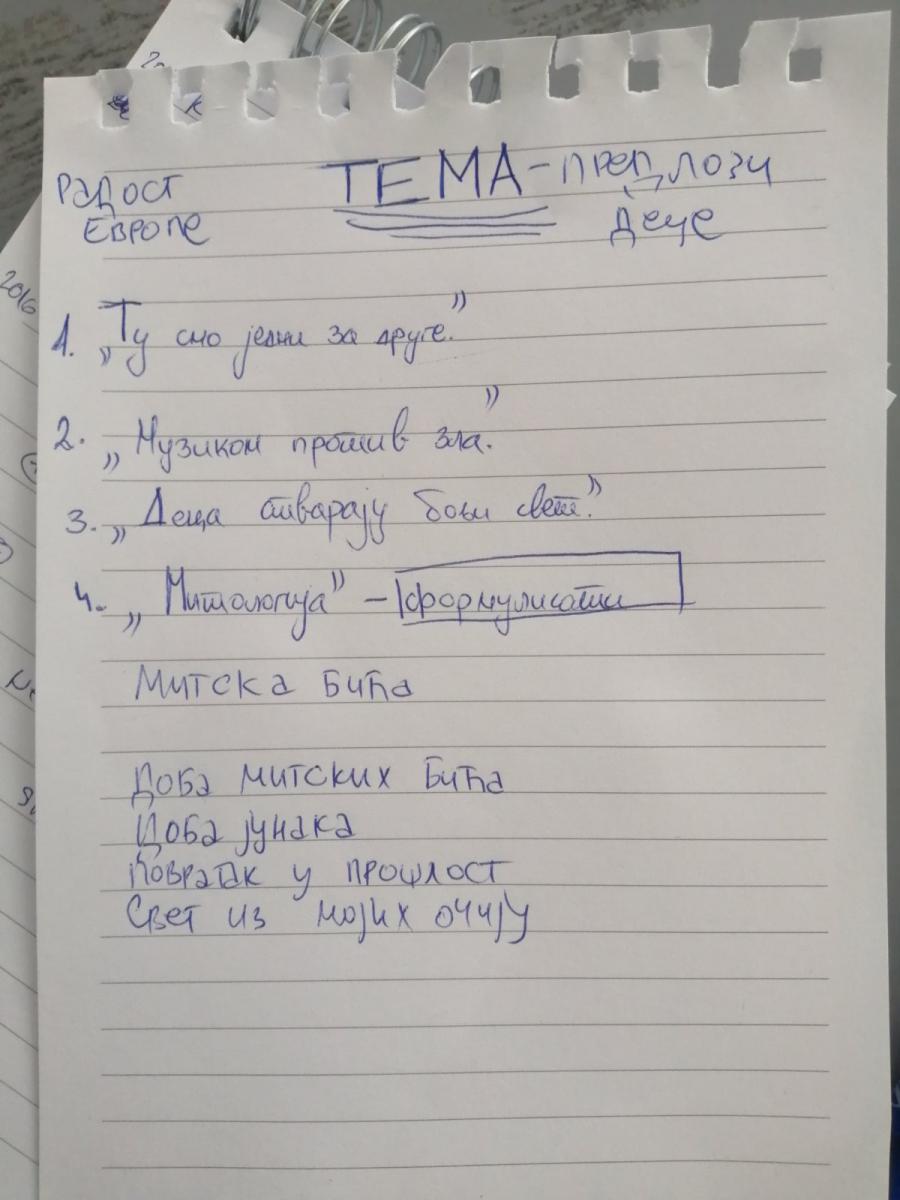 Радост
Европе
ТЕМА - предлози
деце
1. „Ту смо једни за друге.”
2. „Музиком против зла.”
3. „Деца стварају бољи свет.”
4. „Митологија” - формулисати
Митска бића
Доба митских бића
Доба јунака
Повратак у прошлост
Свет из мојих очију
2016